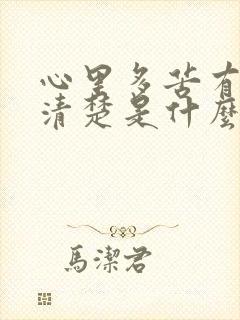 心里多苦有
清楚是什麼
馬潔君